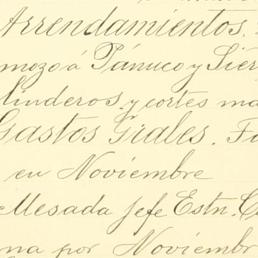 Arrendamientos.
mozo á Pánuco y Sier
linderos y cortes ma
Gastos Grales. Fa
en Noviembre
Mesada Jefe Estn. C
na por Noviembr